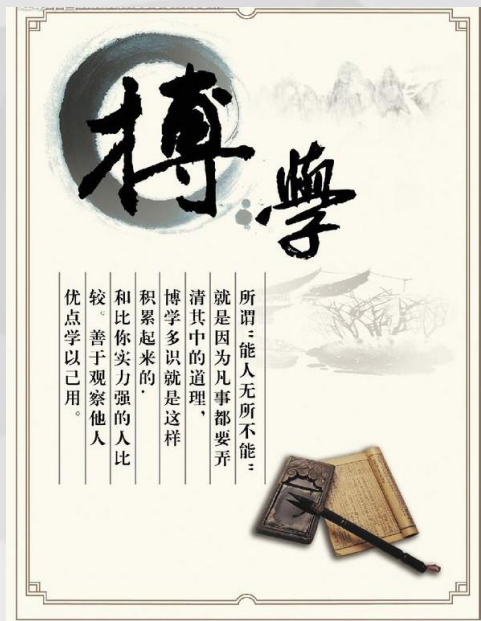 搏学
所谓"能人无所不能"
就是因为凡事都要弄
清其中的道理，
博学多识就是这样
积累起来的.
和比你实力强的人比
较。善于观察他人
优点学以己用。